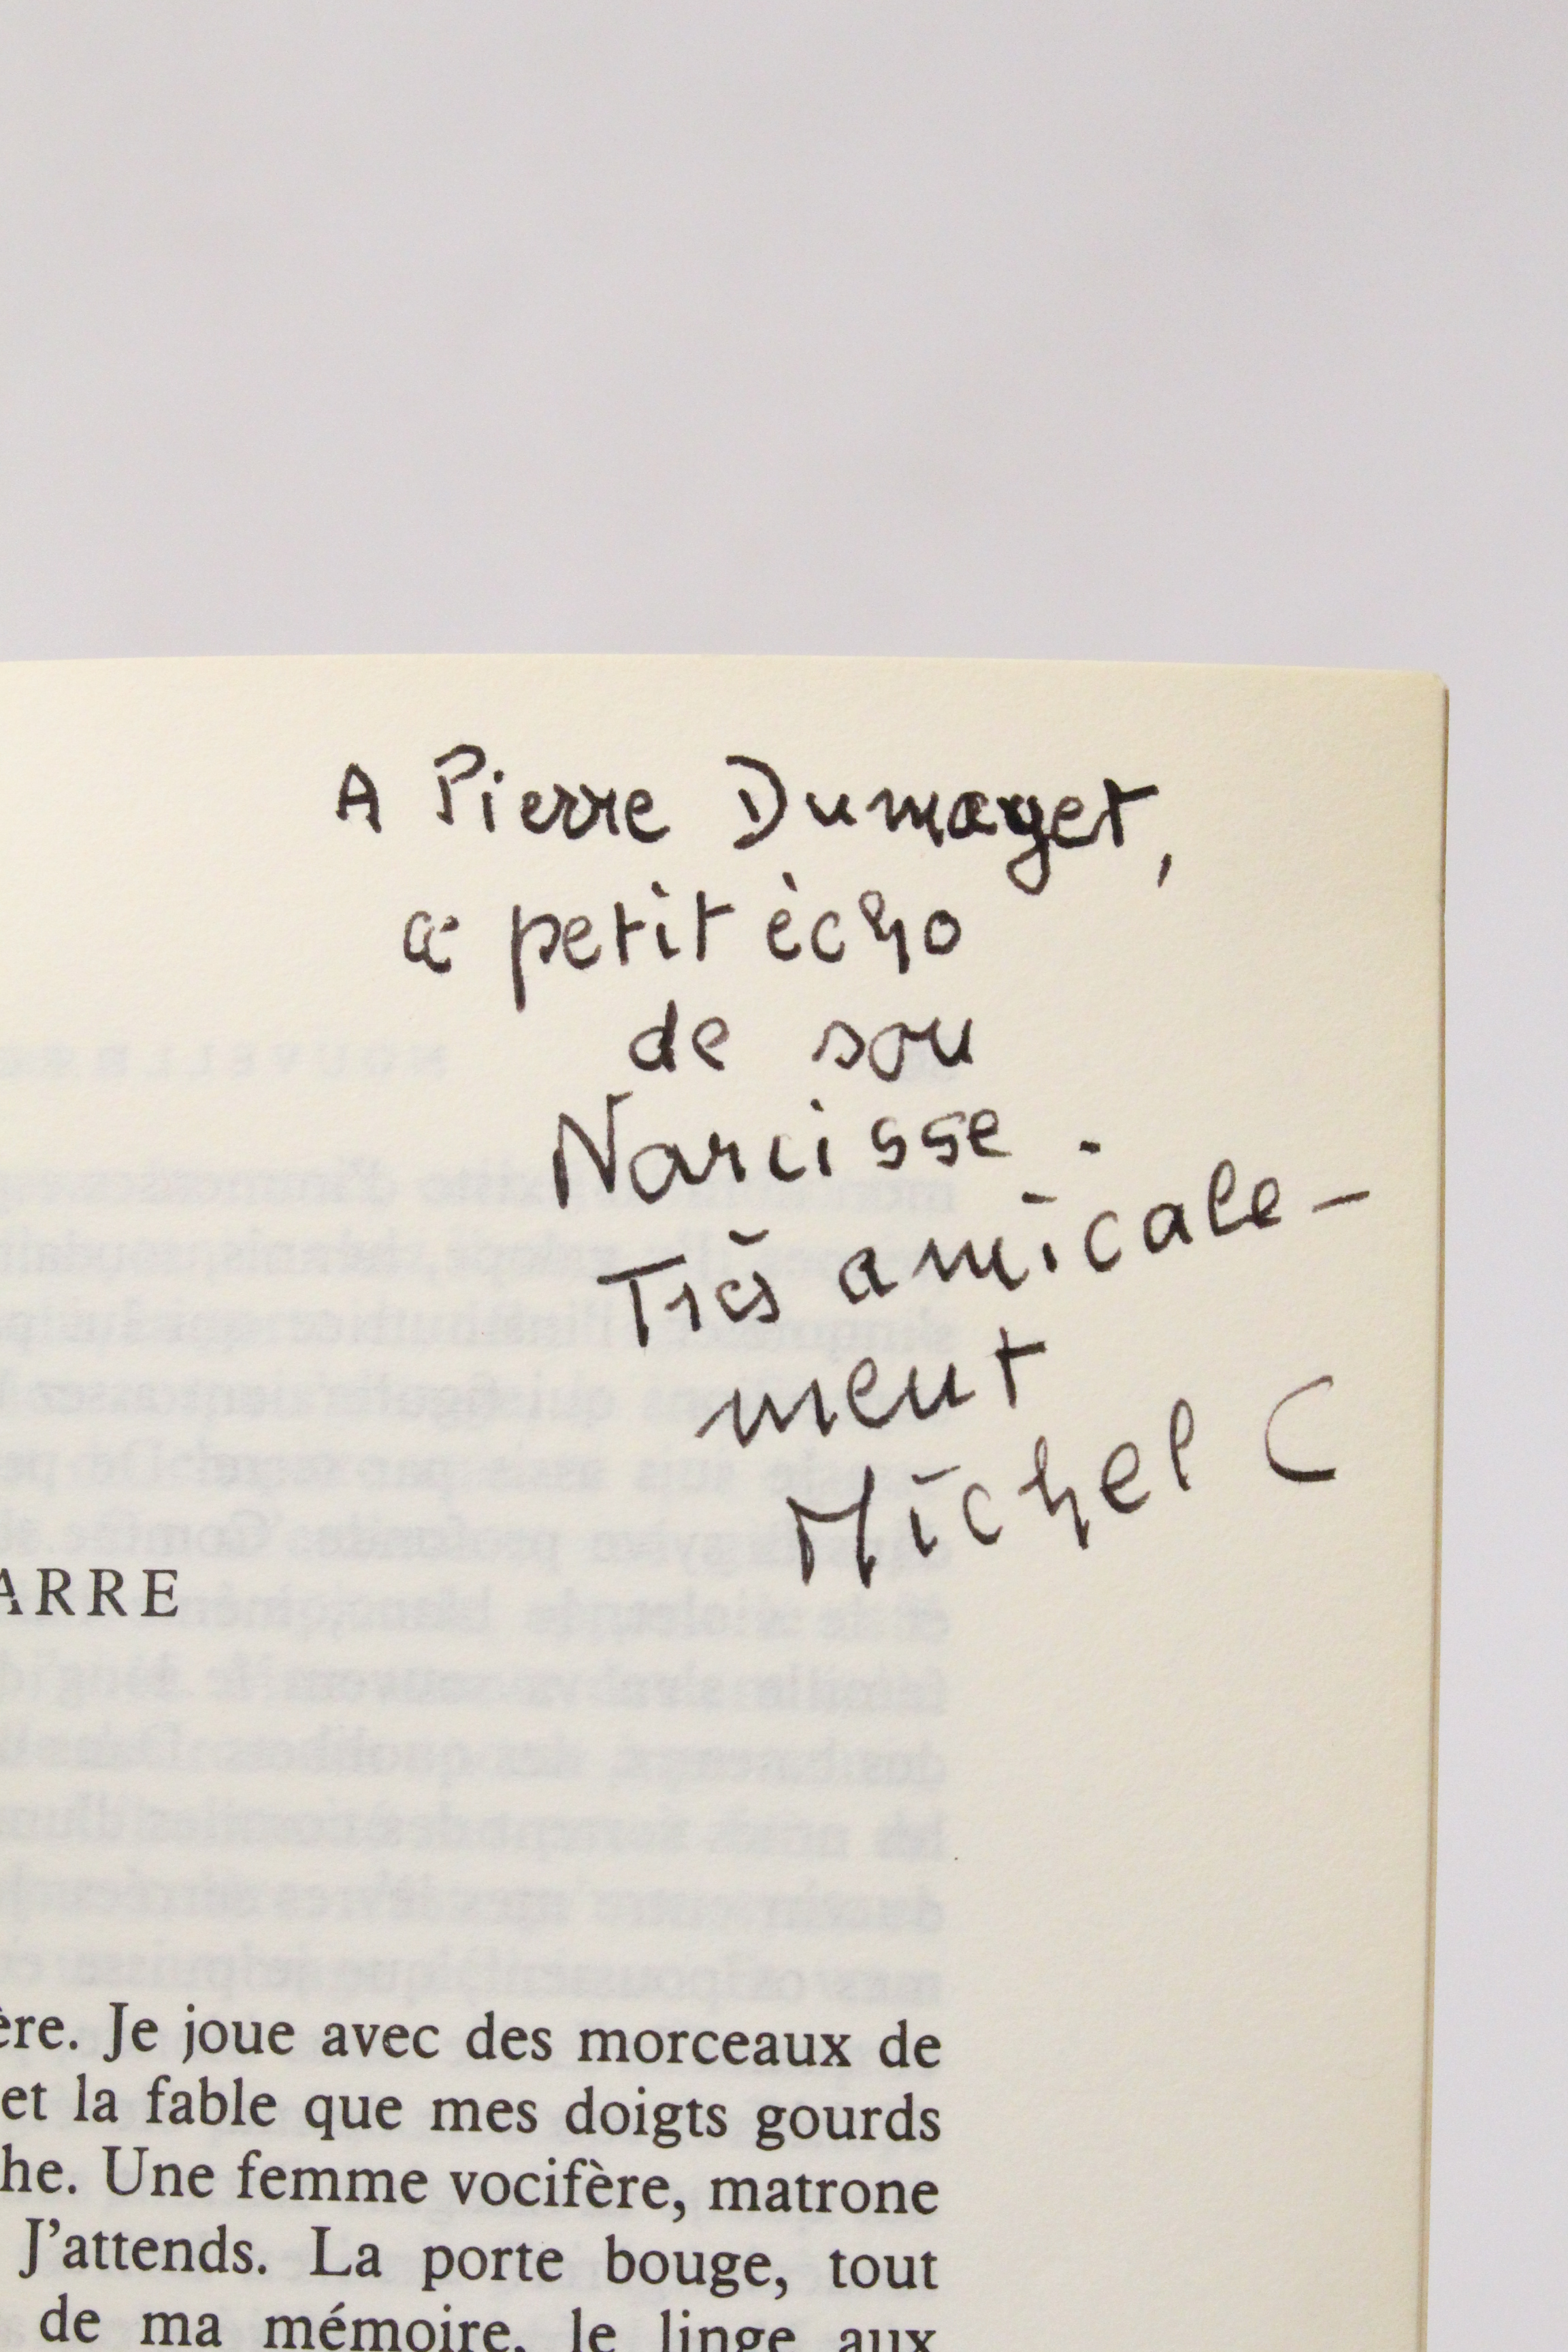 A Pierre Dumayet,
ce petit écho
de son
Narcisse.
Très amicale-
ment
Michel C
ARRE
ère. Je joue avec des morceaux de
et la fable que mes doigts gourds
he. Une femme vocifère, matrone
J'attends. La porte bouge, tout
de ma mémoire, le linge aux